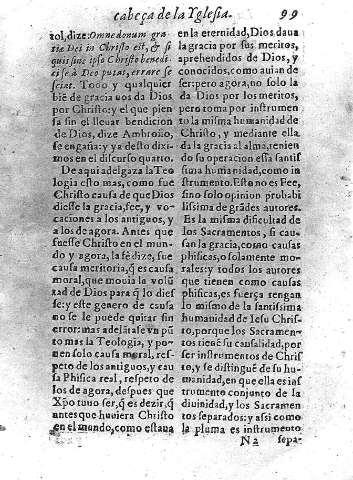 cabeça de la Yglesia. 99
tol, dize: Omne donum gra
tiæ Dei in Christo est, & si
quis sine ipso Christo benedi
ci se à Deo putat, errare se
sciat. Todo y qualquier
biẽ de gracia nos da Dios
por Christo: y el que pien
sa sin el lleuar bendicion
de Dios, dize Ambrosio,
se engaña: y ya desto dixi
mos en el discurso quarto.
De aqui adelgaza la Teo
logia esto mas, como fue
Christo causa de que Dios
diesse la gracia, fee, y vo-
caciones a los antiguos, y
a los de agora. Antes que
fuesse Christo en el mun-
do y agora, la fe dize, fue
causa meritoria, q̃ es causa
moral, que mouia la volũ
tad de Dios para q̃ lo dief
se: y este genero de causa
no se le puede quitar sin
error: mas adelãtase vn pũ
to mas la Teologia, y po-
nen solo causa moral, res-
peto de los antiguos, y cau
sa Phisica real, respeto de
los de agora, despues que
Xp̃o tuuo ser, q̃ es dezir, q̃
antes que huuiera Christo
en el mundo, como estaua
en la eternidad, Dios daua
la gracia por sus meritos,
aprehendidos de Dios, y
conocidos, como auian de
ser: pero agora, no solo la
da Dios por los meritos,
pero toma por instrumen
to la misma humanidad de
Christo, y mediante ella
da la gracia al alma, tenien
do su operacion esta santis
sima humanidad, como in
strumento. Esto no es Fee,
sino solo opinion probabi
lissima de grãdes autores.
Es la misma dificultad de
los Sacramentos, si cau-
san la gracia, como causas
phisicas, o solamente mo-
rales: y todos los autores
que tienen como causas
phisicas, es fuerça tengan
lo mismo de la santissima
humanidad de Iesu Chris-
to, porque los Sacramen-
tos tienẽ su causalidad, por
ser instrumentos de Chris
to, y se distinguẽ de su hu-
manidad, en que ella es ins
trumento conjunto de la
diuinidad, y los Sacramen
tos separados: y assi como
la pluma es instrumento
N2 sepa-